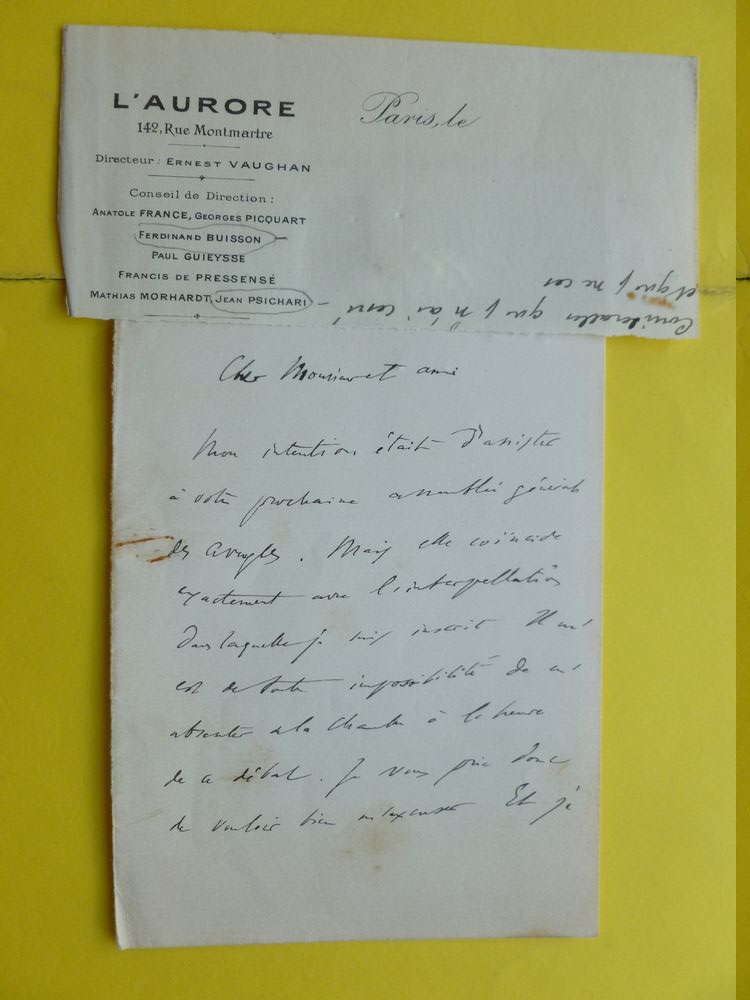 L'AURORE
142, Rue Montmartre
Directeur : ERNEST VAUGHAN
Conseil de Direction :
ANATOLE FRANCE, GEORGES PICQUART
FERDINAND BUISSON
PAUL GUIEYSSE
FRANCIS DE PRESSENSÉ
MATHIAS MORHARDT, JEAN PSICHARI
Paris, le
Considerables que je n'ai
et que je ne
Cher Monsieur et ami
Mon intention était d'assister
à votre prochaine assemblée générale
des aveugles. Mais elle coïncide
exactement avec l'interpellation
dans laquelle je suis inscrit Il m'
est de toute impossibilité de m'
absenter de la Chambre à l'heure
de ce débat. Je vous prie donc
de vouloir bien m'excuser Et je